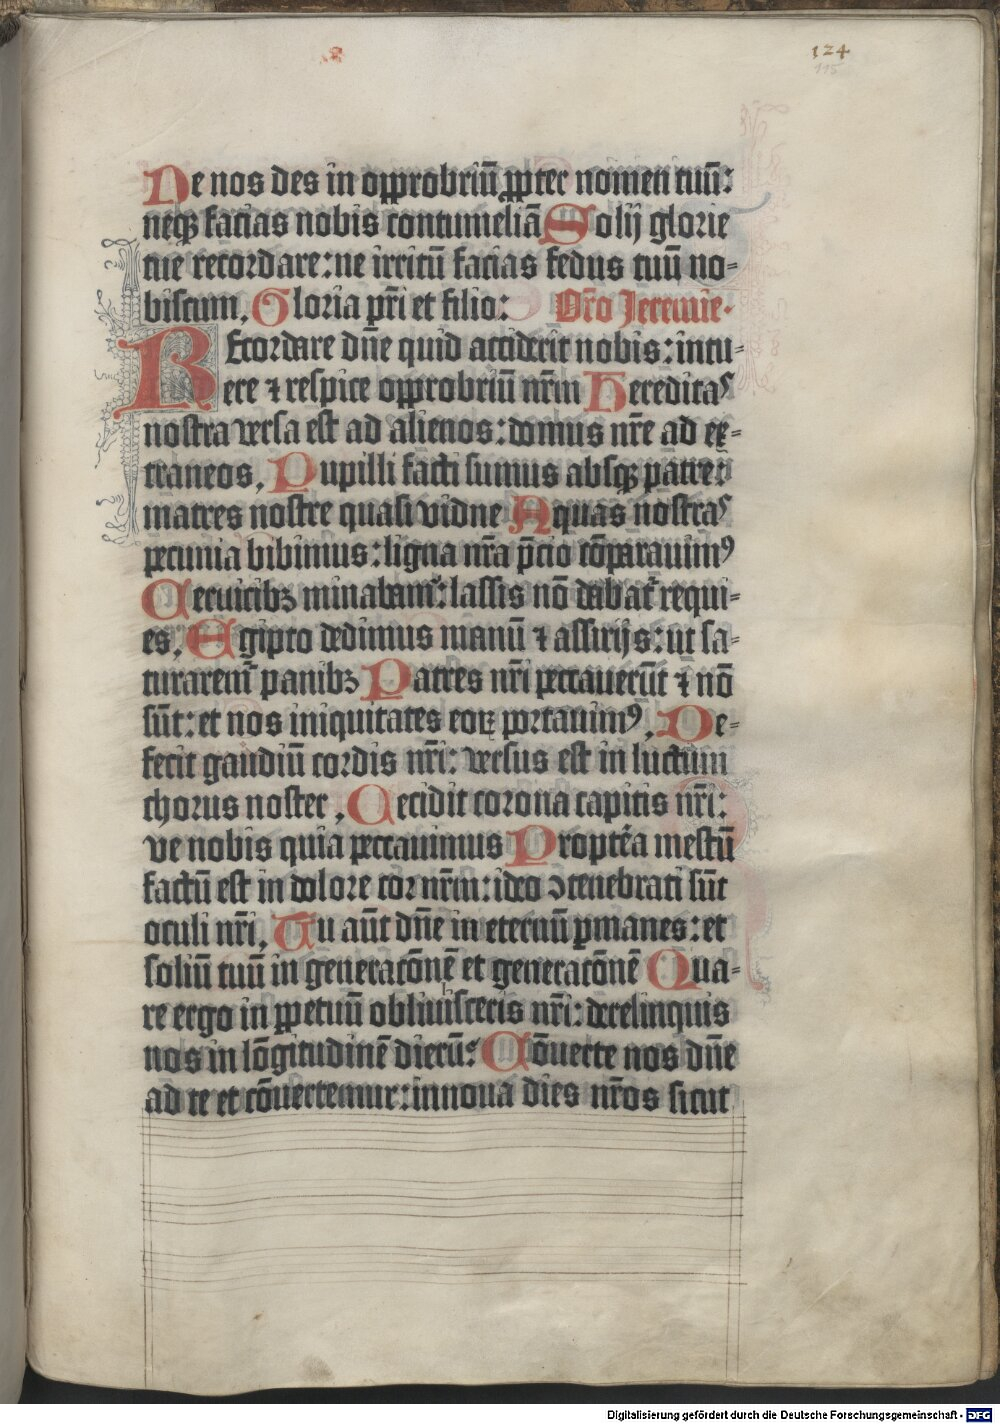 124
115
Ne nos des in opprobriū ꝓpter nomen tuū:
neqꝫ facias nobis contumeliā Solij glorie
tue recordare: ne irritū facias fedus tuū no⸗
biscum. Gloria pr̄i et filio: Or̄o Jeremie.
REcordare dn̄e quid acciderit nobis: intu⸗
ere ⁊ respice opprobriū nr̄m Hereditas
nostra versa est ad alienos: domus nr̄e ad ex⸗
traneos. Pupilli facti sumus absqꝫ patre:
matres nostre quasi vidue Aquas nostras
pecunia bibimus: ligna nr̄a p̄cio cōparauimꝰ
Ceruicibꝫ minabamr̄: lassis nō dabat᷑ requi⸗
es. Egipto dedimus manū ⁊ assirijs: ut sa⸗
turarem̄ panibꝫ Patres nr̄i peccauerūt ⁊ nō
sūt: et nos iniquitates eoꝝ portauimꝰ. De⸗
fecit gaudiū cordis nr̄i: versus est in luctum
chorus noster. Cecidit corona capitis nr̄i:
ve nobis quia peccauimus Propt̄ea mestū
factū est in dolore cor nr̄m: ideo ↄtenebrati sūt
oculi nr̄i. Tu aūt dn̄e in eternū ꝑmanes: et
soliū tuū in generatōnē et generatōnē Qua⸗
re ergo in ꝑpetuū obliuisceris nr̄i: derelinquis
nos in lōgitudinē dierū: Cōuerte nos dn̄e
ad te et cōuertemur: innoua dies nr̄os sicut
Digitalisierung gefördert durch die Deutsche Forschungsgemeinschaft - DFG